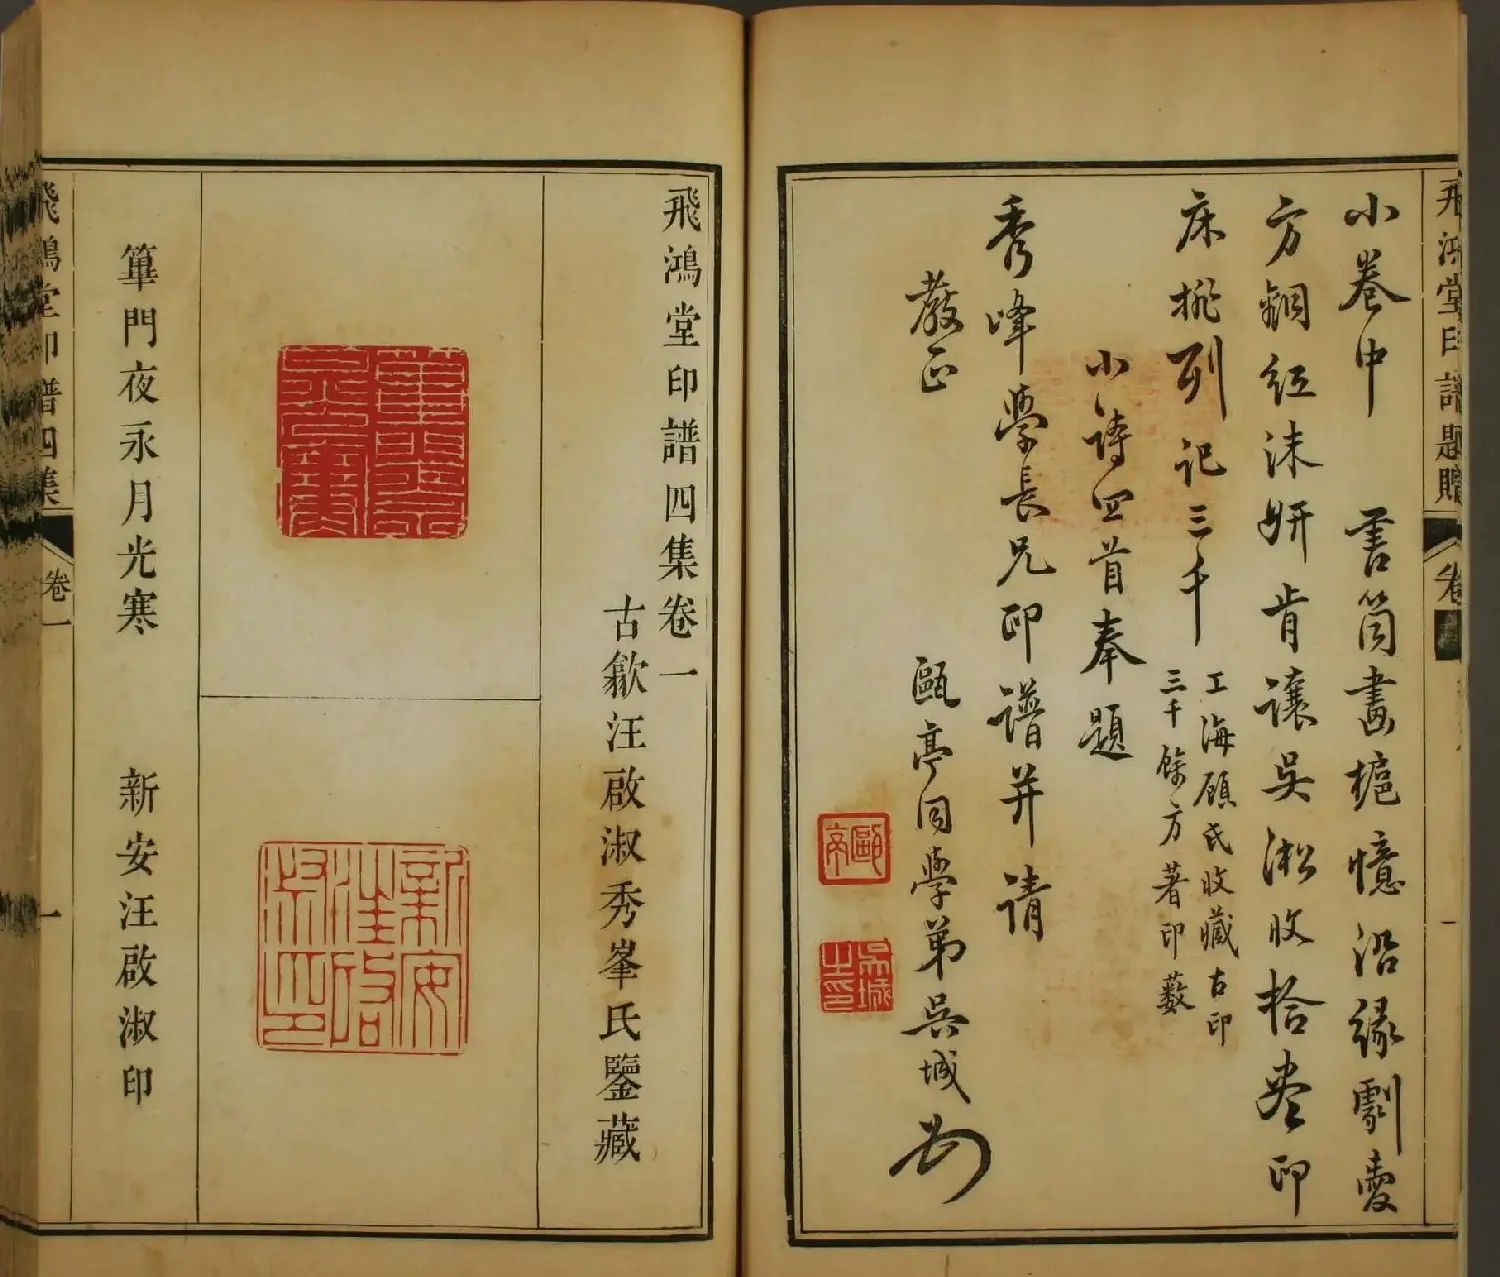 飛鴻堂印譜題贈
小卷中　書簡畫樝憶沿緣劇愛
方銅紅沫妍肯讓吳淞收拾盡印
床排列記三千
工海顧氏收藏古印
三千餘方著印藪
小詩四首奉題
秀峰學長兄印譜并請
教正
甌亭同學弟吳城
甌亭
吳城之印
飛鴻堂印譜四集卷一
古歙汪啟淑秀峯氏鑒藏
篳門夜永月光寒
新安汪啟淑印
篳門夜永月光寒
新安汪啟淑印
飛鴻堂印譜四集
卷一
一